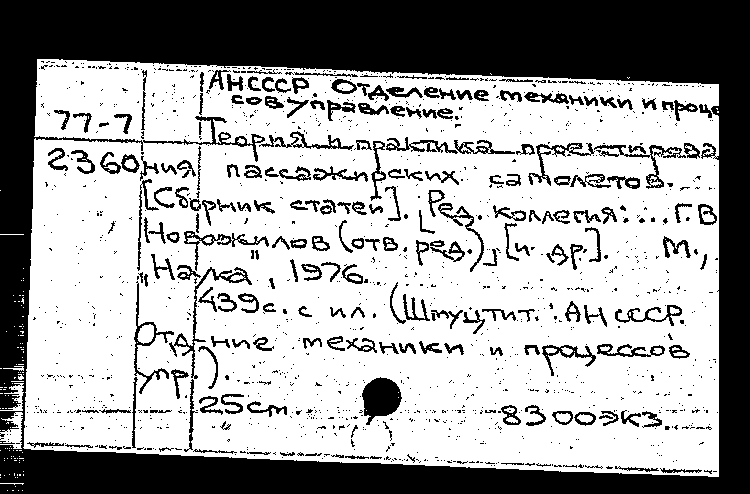 АН СССР. Отделение механики и проце
сов управление.
77-7
Теория и практика проектирова
2360
ния пассажирских самолетов.
[Сборник статей]. [Ред. коллегия: ... Г.В
Новожилов (отв. ред.), [и др]. М.,
"Наука", 1976.
439с. с ил. (Шмуцтит.: АН СССР.
Отд-ние механики и процессов
упр.).
25cm. 8300экз.